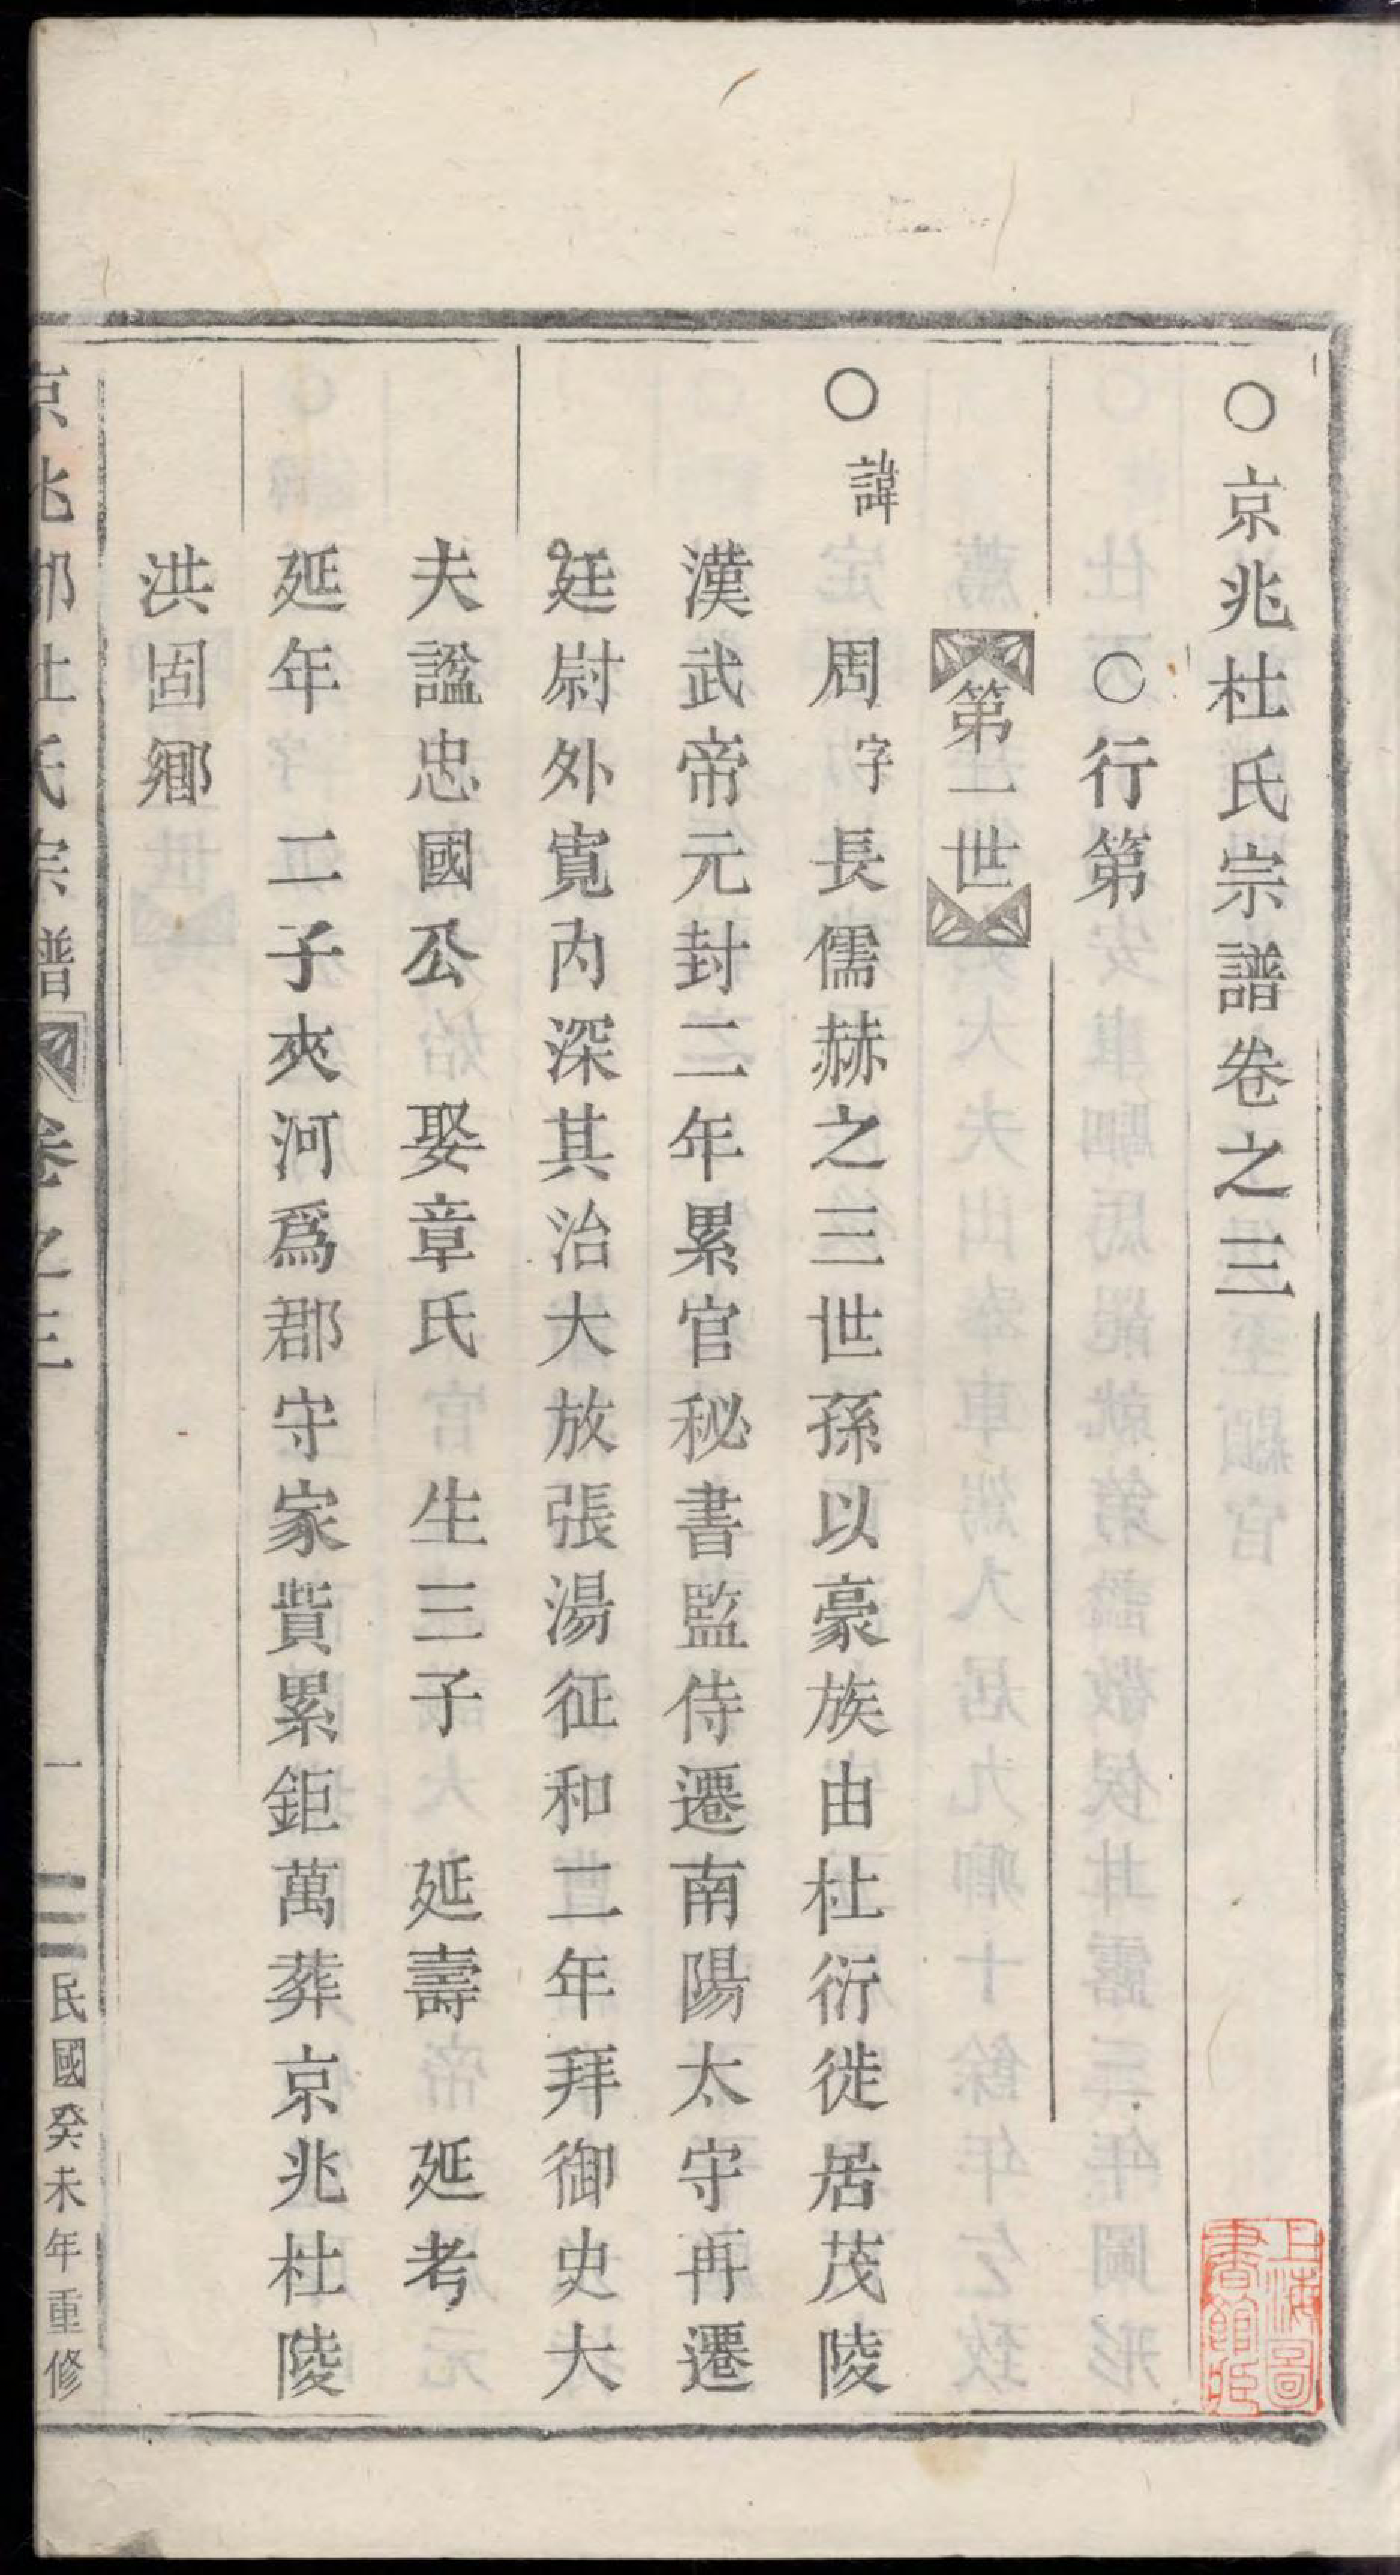 ○京兆杜氏宗譜卷之三
○行第
第一世
○諱周字長儒赫之三世孫以豪族由杜衍徙居茂陵
漢武帝元封二年累官秘書監侍遷南陽太守再遷
廷尉外寬內深其治大放張湯征和二年拜御史大
夫諡忠國公 娶章氏 生三子 延壽 延考
延年 二子夾河爲郡守家貲累鉅萬葬京兆杜陵
洪固鄉
京兆郡杜氏宗譜 卷之三 一 民國癸未年重修
上海圖書館藏